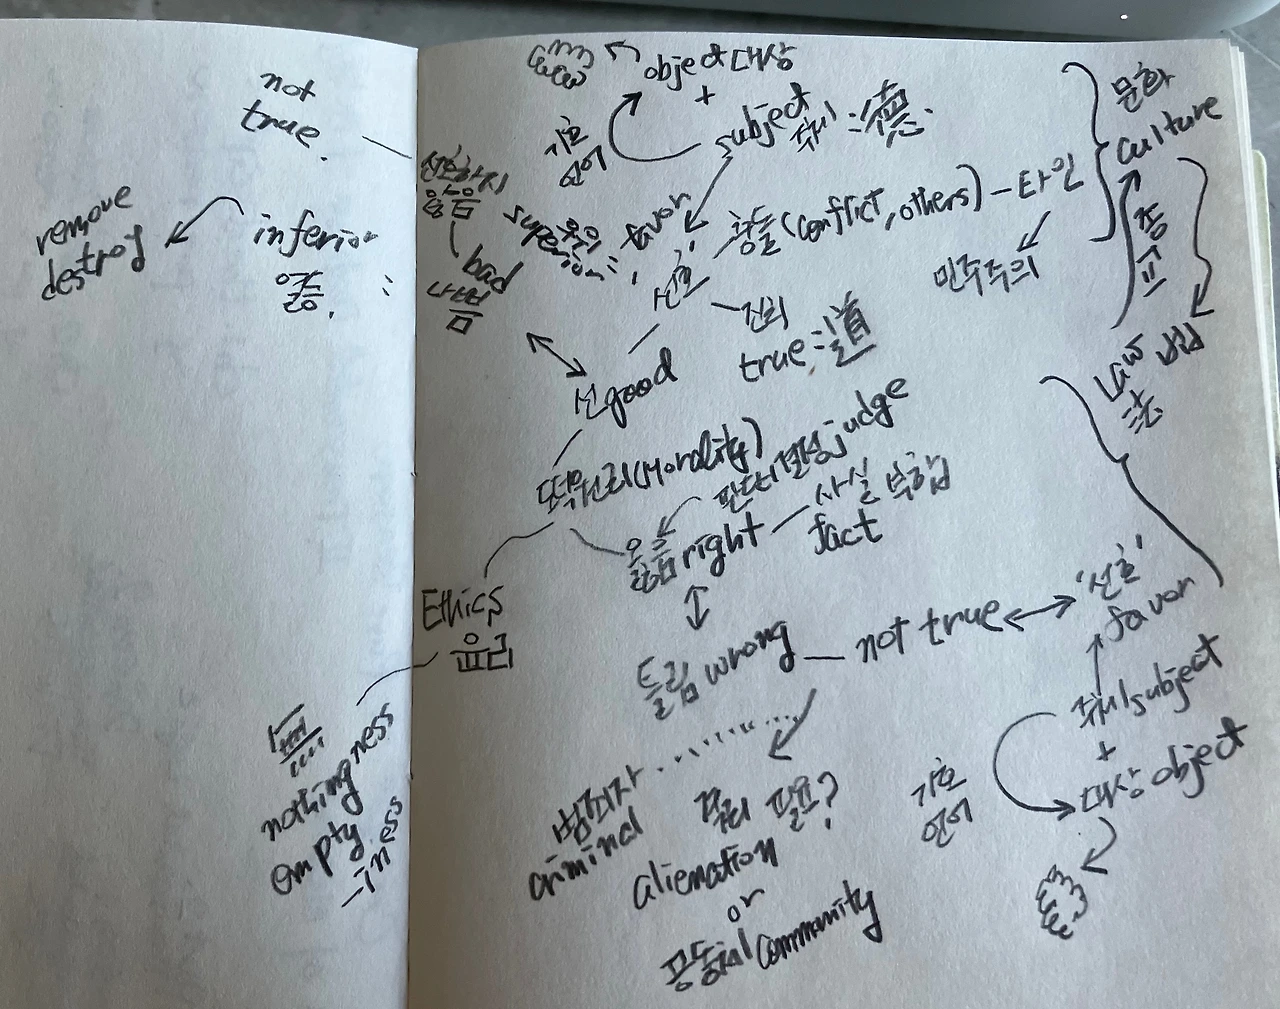 not
true.
remove
destroy
inferior
열등.
:
object 대상
+
subject 주체 : 德.
기호
언어
문화
culture
종교
Law 법
法
선호하지
않음
bad
나쁨
superior 우위 :
favor
선호
충돌 (conflict, others) - 타인
민주주의
진리
true : 道
선 good
도덕원리 (Morality)
판단의 결정 judge
옳음 right
사실 부합
fact
Ethics
윤리
無
nothingness
emptyness
-iness
틀림 wrong
not true
'선호'
favor
주체 subject
+
대상 object
기호
언어
범죄자
criminal
격리 필요?
alienation
or
공동체 community